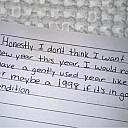 Honestly I dont think I want
new year this year. I would ra
have a gently used year like
or maybe a 1998 if it's in go
ondition